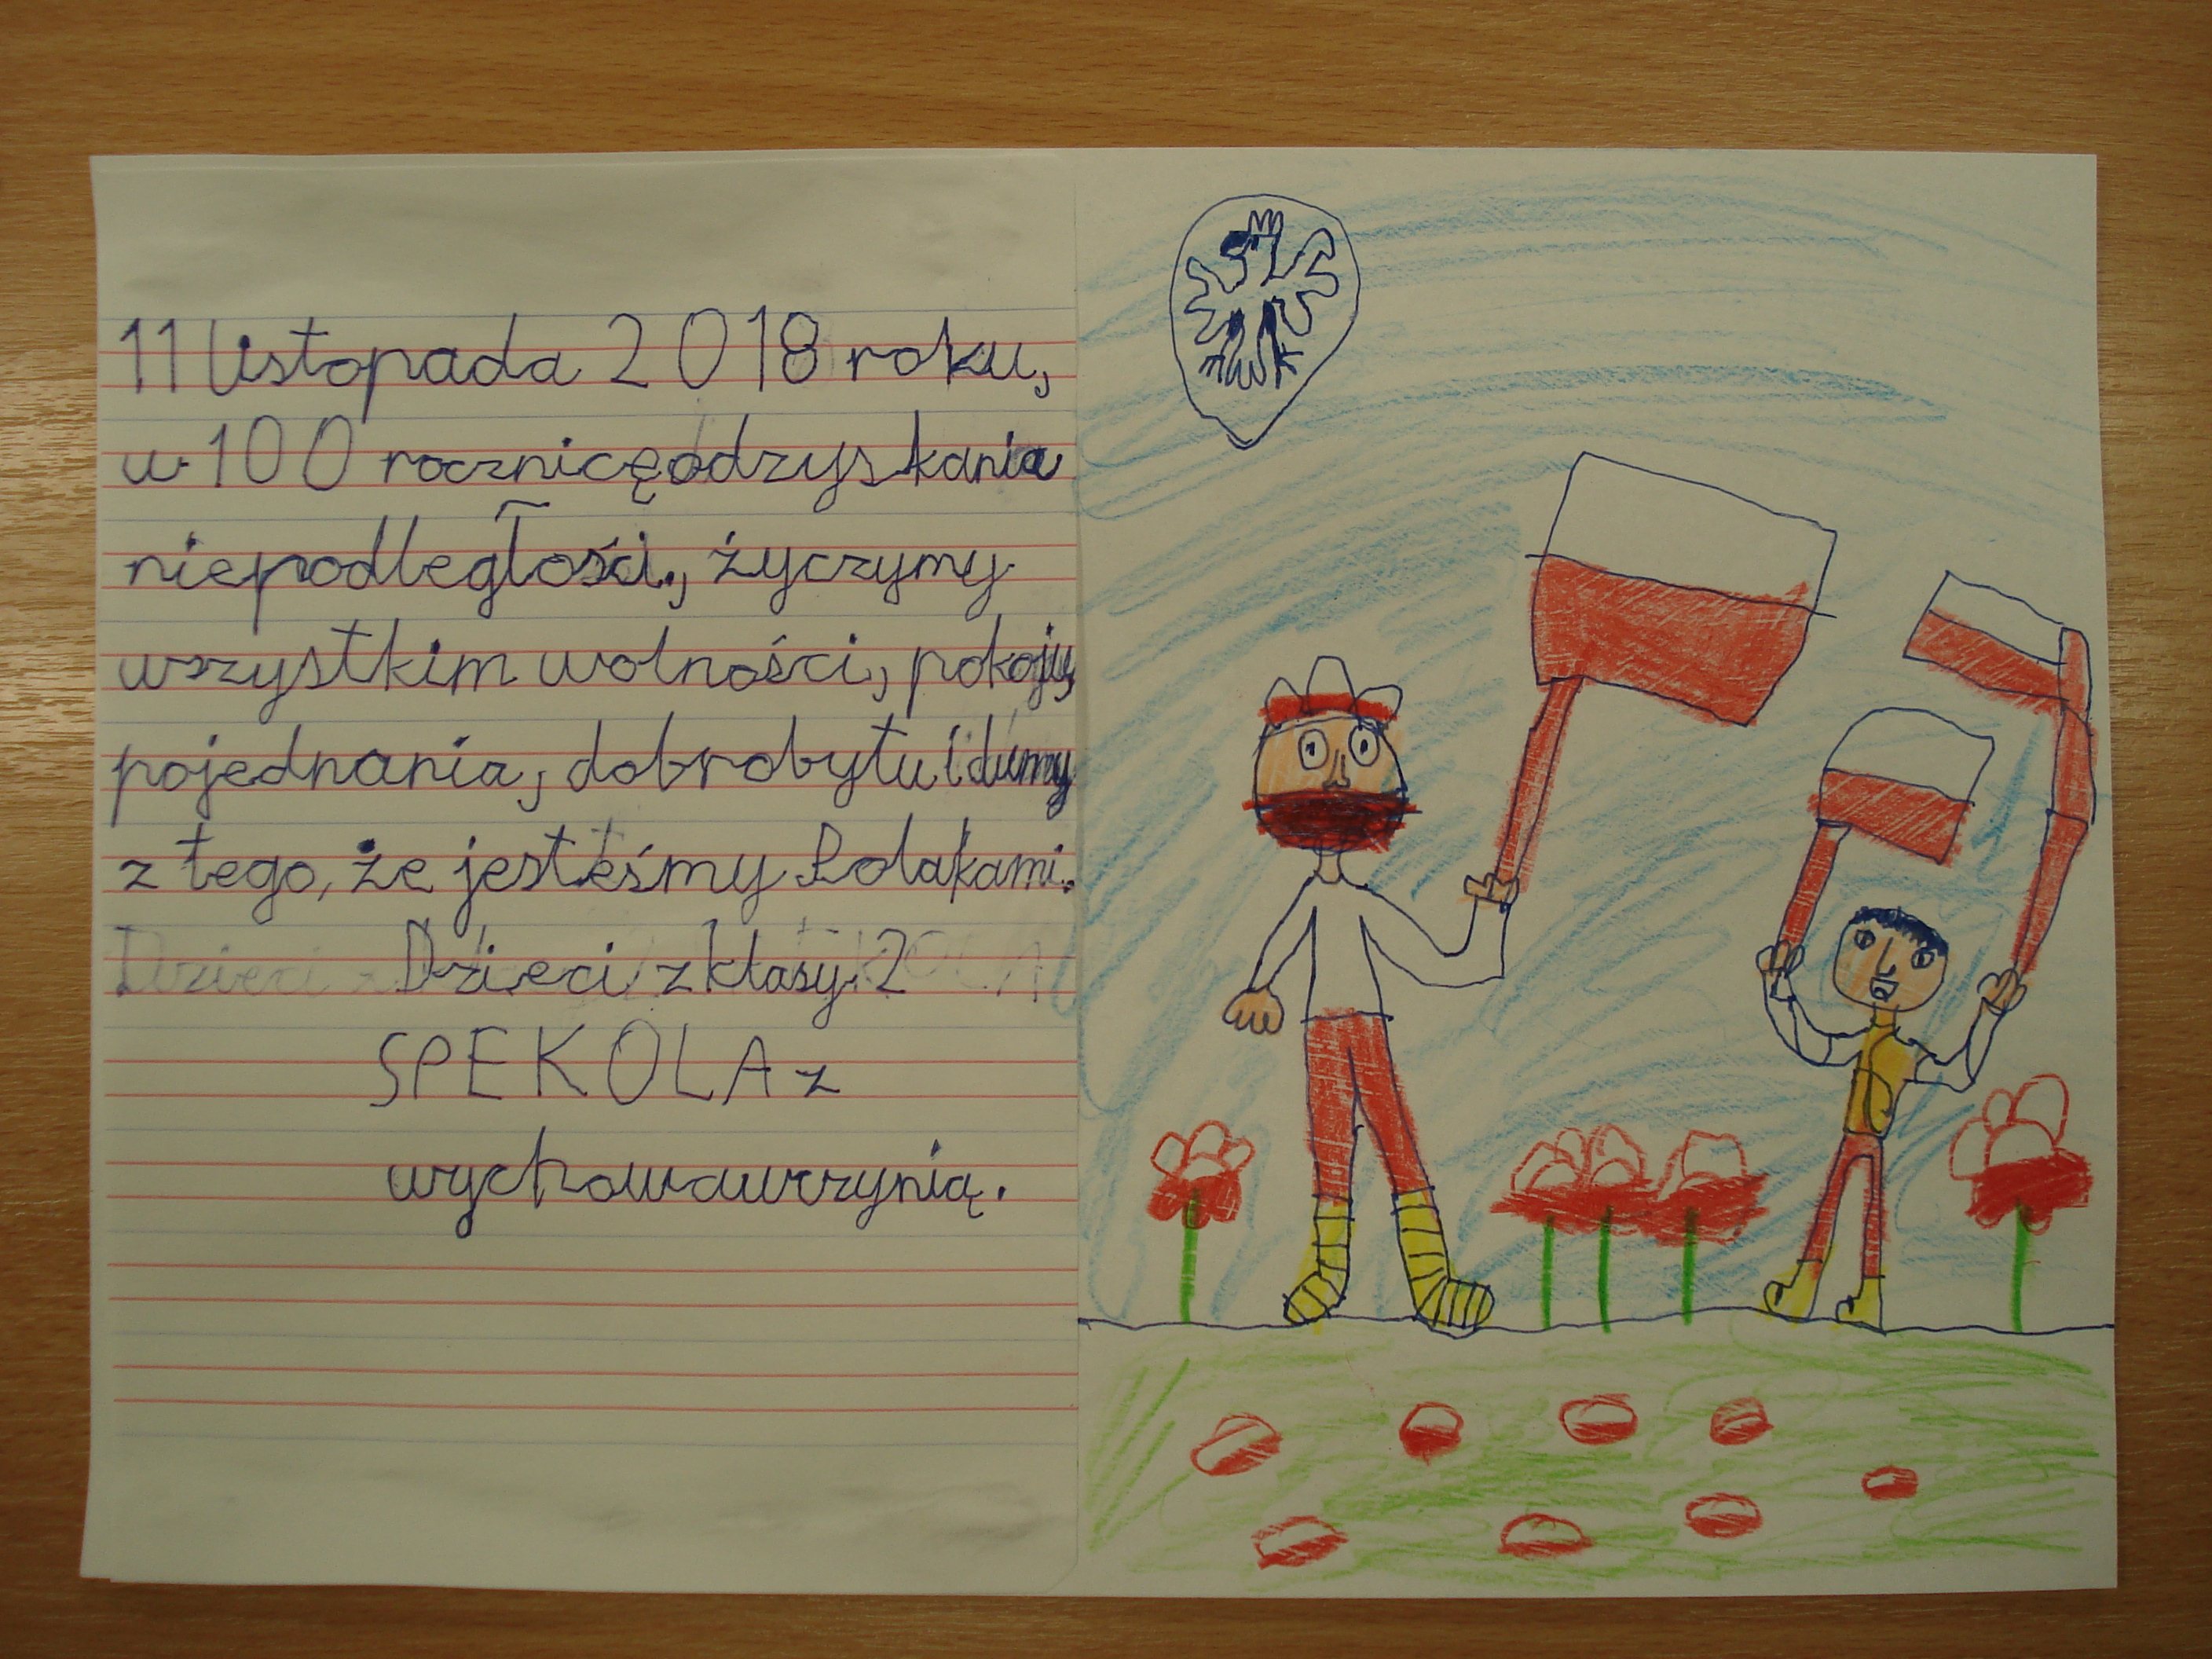 11 listopada 2018 roku,
w 100 rocznicę odzyskania
niepodległości, życzymy
wszystkim wolności, pokoju,
pojednania, dobrobytu i dumy
z tego, że jesteśmy Polakami.
Dzieci z klasy 2
SPEKOLA z
wychowawczynią.